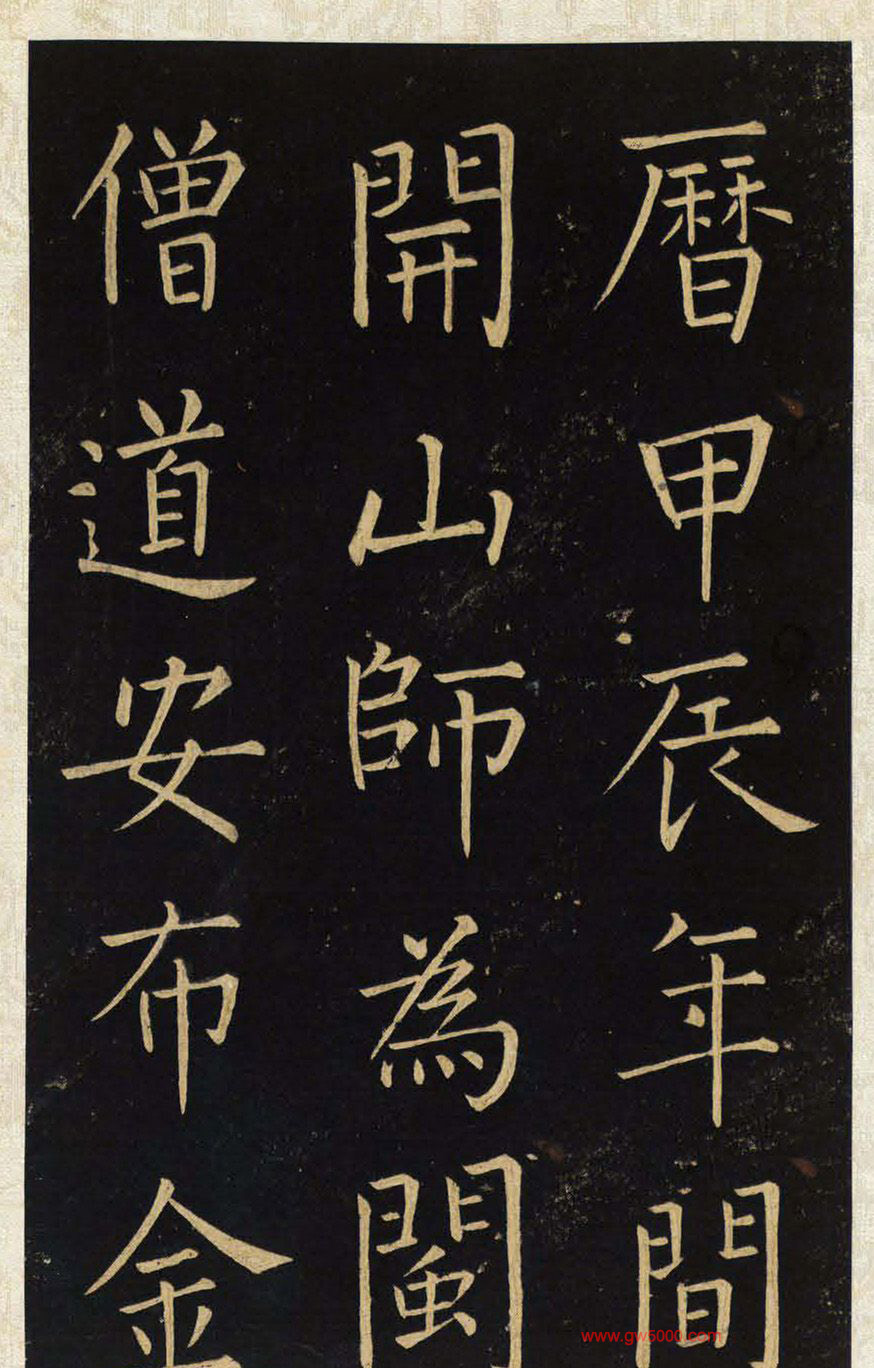 曆甲辰年間
開山師為閩
僧道安布金
www.gw5000.com